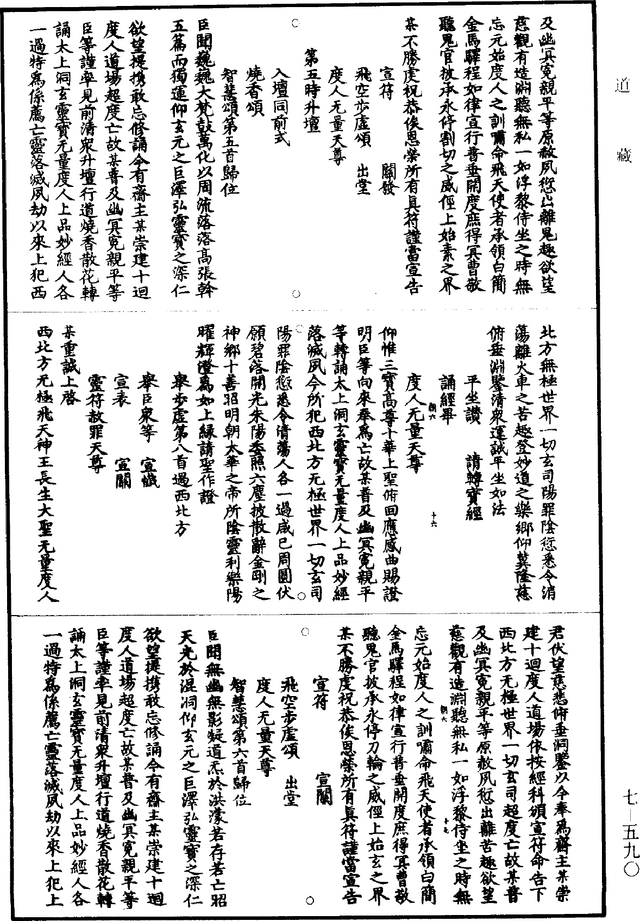 道藏
及幽冥寃親平等原赦夙愆出離鬼趣欲望
慈觀有造淵聽無私一如浮黎侍坐之時無
忘元始度人之訓嘯命飛天使者承領白簡
金馬驛程如律宣行普垂開度庶得冥曹敬
聽鬼官披承永停割切之威徑上始素之界
某不勝虔祝恭俟恩榮所有眞符謹當宣告
宣符　關發
飛空步虛頌　出堂
度人无量天尊
第五時升壇
入壇同前式
燒香頌
智慧頌第五首歸位
臣聞巍巍大梵鼓萬化以周流落落高張斡
五篇而獨運仰玄元之巨澤弘靈寶之深仁
欲望提携敢忘修誦今有齋主某崇建十迴
度人道場超度亡故某普及幽冥寃親平等
臣等謹率見前清衆升壇行道燒香散花轉
誦太上洞玄靈寶无量度人上品妙經人各
一過特為係薦亡靈落滅夙劫以來上犯西
北方無極世界一切玄司陽罪陰愆悉令消
蕩離火車之苦趣登妙道之樂鄉仰冀隆慈
俯垂淵鑒清衆運誠平坐如法
平坐讚　請轉寳經
誦經畢
度人无量天尊
仰惟三寶高尊十華上聖俯回應感曲賜證
明臣等向來奉為亡故某普及幽冥寃親平
等轉誦太上洞玄靈寶无量度人上品妙經
落滅夙今所犯西北方无極世界一切玄司
陽罪陰愆悉令清蕩人各一過咸已周圓伏
願碧落開光朱陽委照六塵披散辭金剛之
神鄉十善昭明朝太華之帝所陰靈利樂陽
曜輝澄為如上緣請聖作證
舉步虛第八首過西北方
舉臣衆等　宣懺
宣表　宣關
靈符赦罪天尊
某重誠上啓
西北方无極飛天神王長生大聖无量度人
君伏望慈悲俯垂洞鑒以今奉為齋主某崇
建十迴度人道場依按經科頒宣符命告下
西北方无極世界一切玄司超度亡故某普
及幽冥寃親平等原赦夙愆出離苦趣欲望
慈觀有造淵聽無私一如浮黎侍坐之時無
忘元始度人之訓嘯命飛天使者承領白簡
金馬驛程如律宣行普垂開度庶得冥曹敬
聽鬼官披承永停刀輪之威徑上始玄之界
某不勝虔祝恭俟恩榮所有眞符謹當宣告
宣符　宣關
飛空步虛頌　出堂
度人无量天尊
智慧頌第六首歸位
臣聞無幽無影凝道炁於洪濛若存若亡昭
天光於混洞仰玄元之巨澤弘靈寶之深仁
欲望提携敢忘修誦今有齋主某崇建十迴
度人道場超度亡故某普及幽冥寃親平等
臣等謹率見前清衆升壇行道燒香散花轉
誦太上洞玄靈寶无量度人上品妙經人各
一過特為係薦亡靈落滅夙劫以來上犯上
七—五九〇